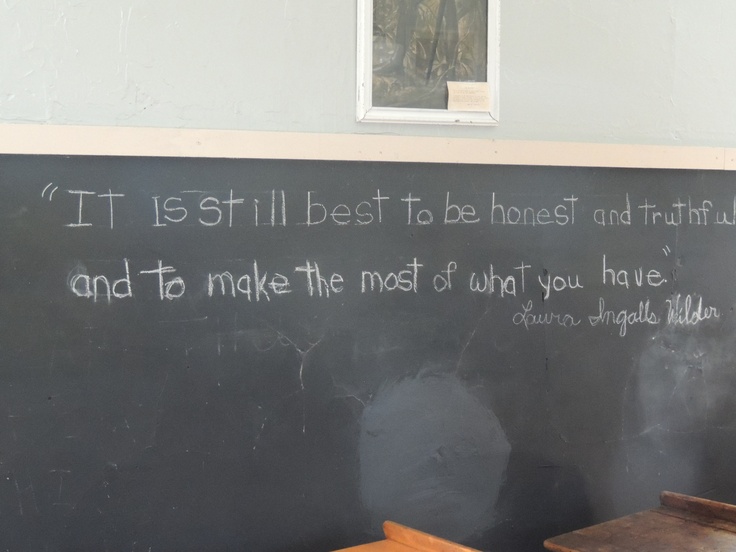 "IT Is still best to be honest and truthful
and to make the most of what you have."
Laura Ingalls Wilder